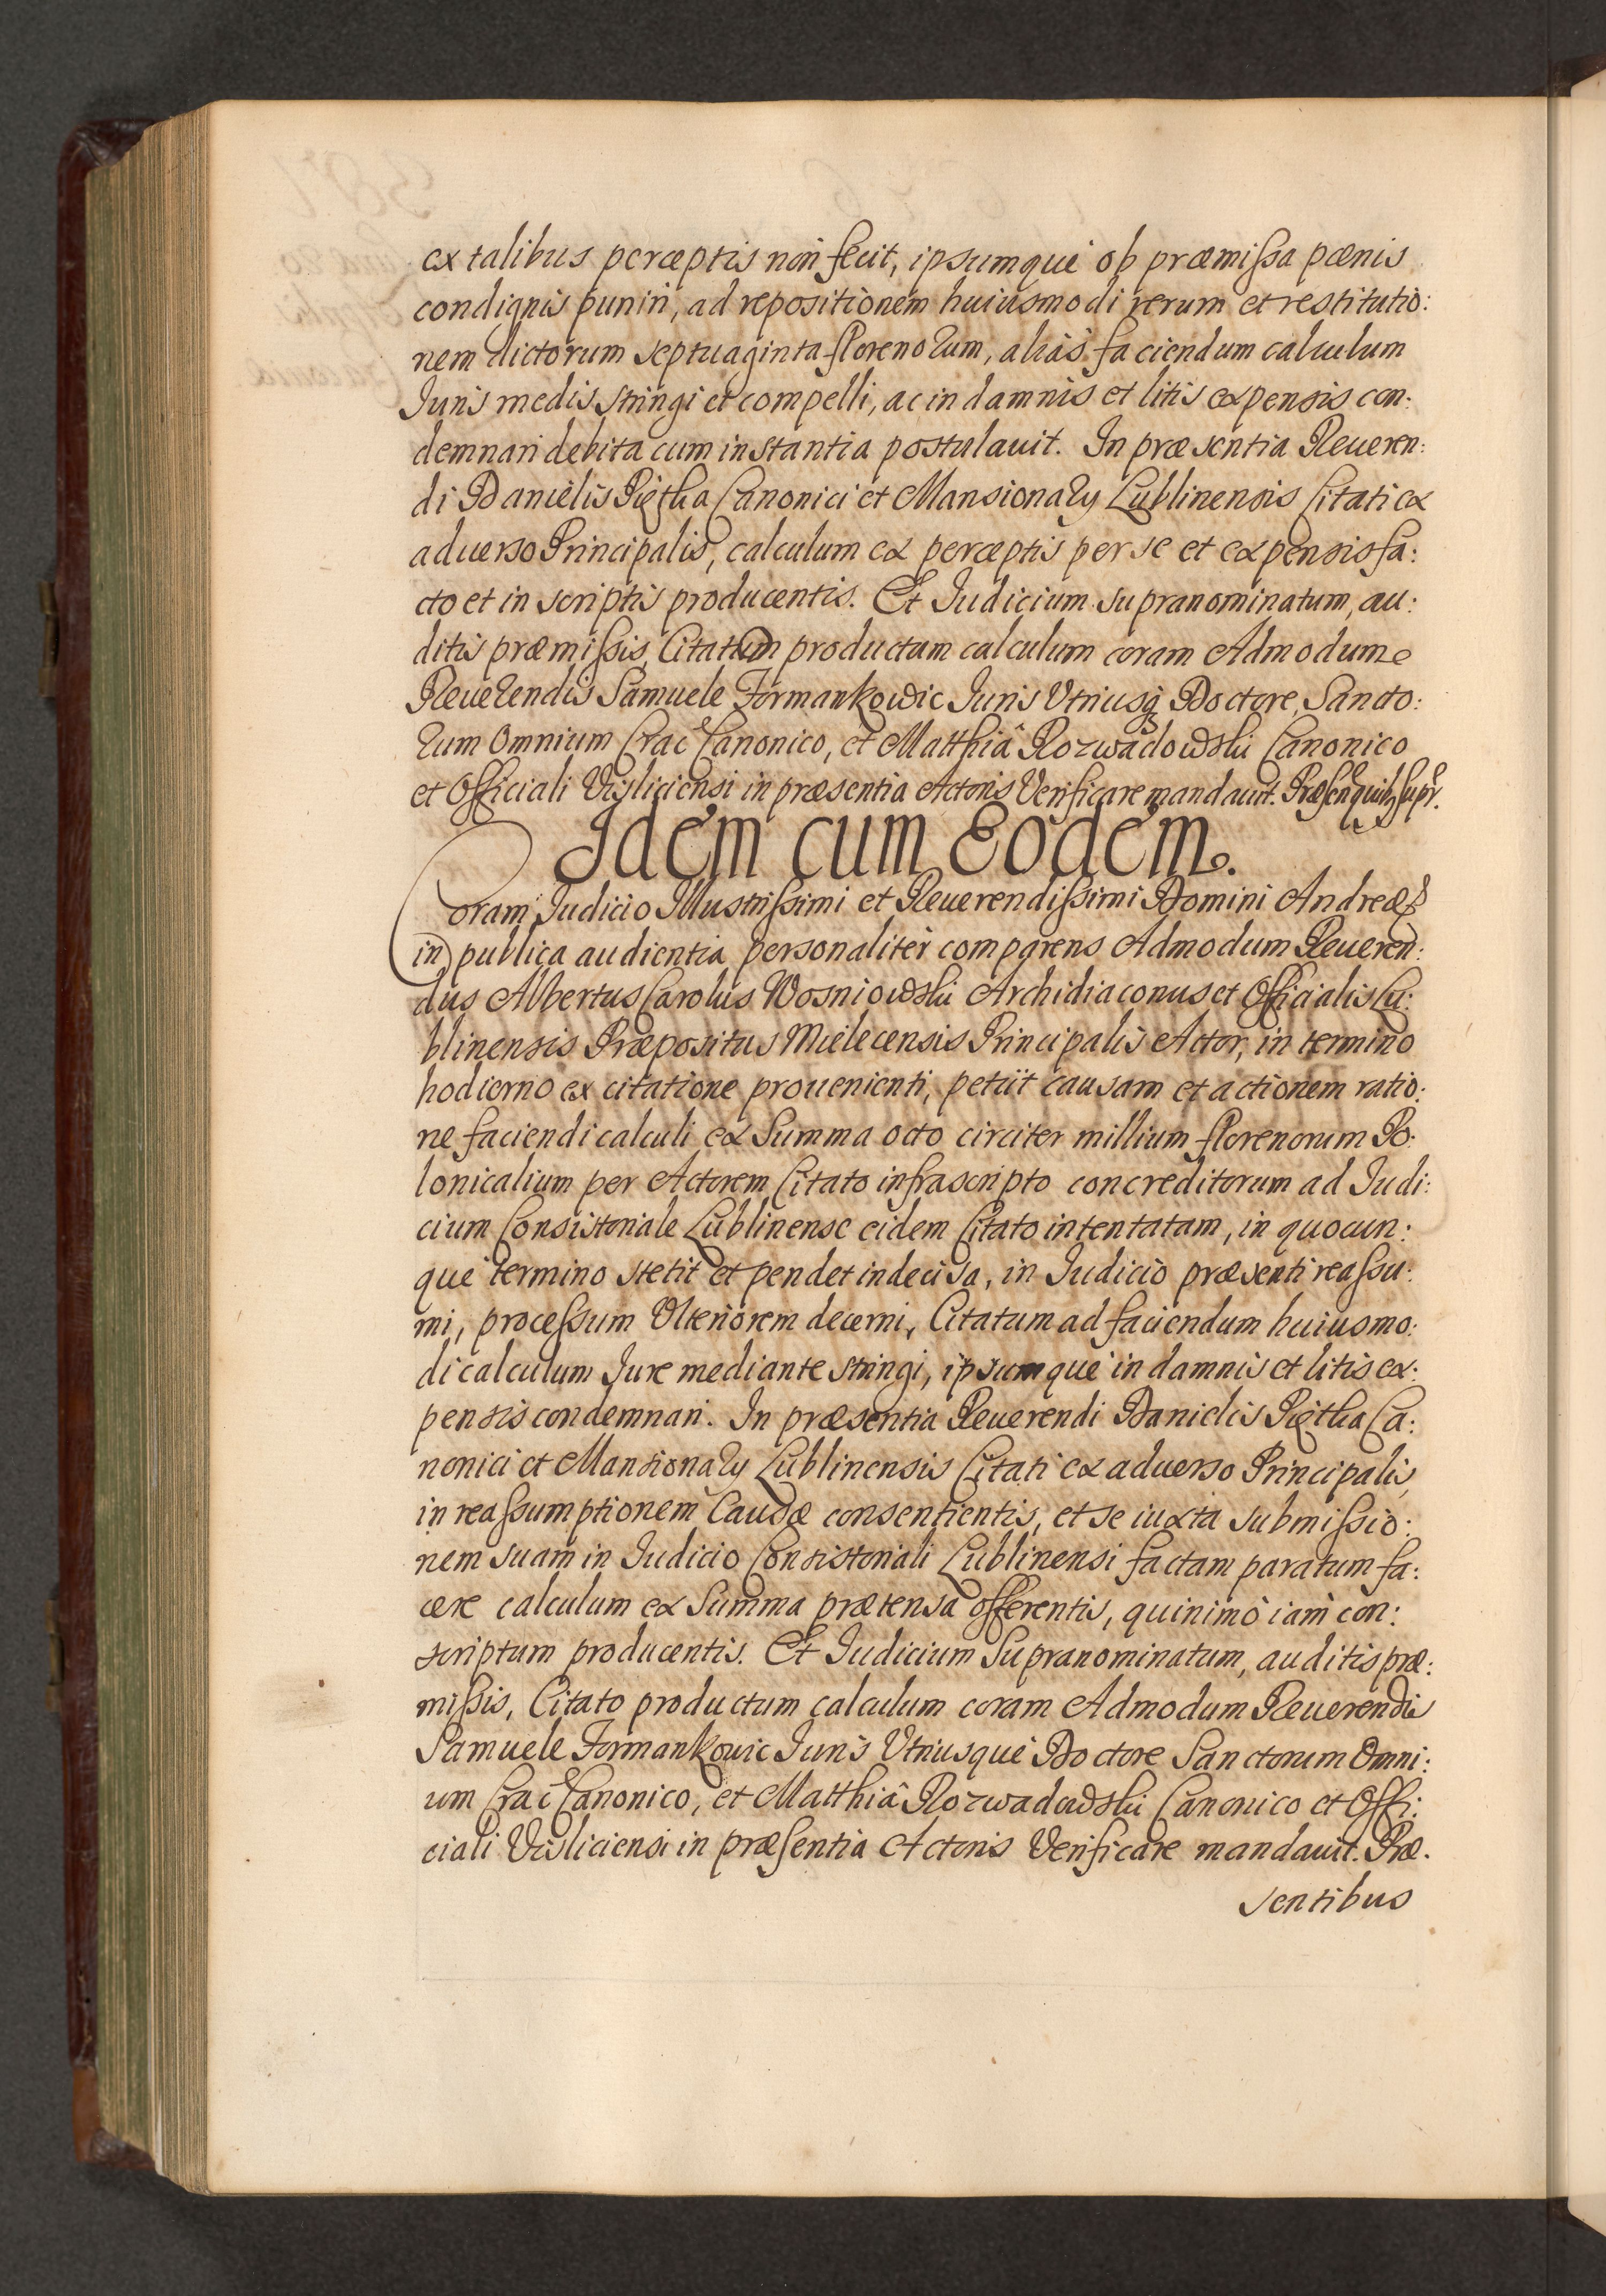 ex talibus perceptis non fecit, ipsumque ob præmissa pœnis
condignis puniri, ad repositionem huiusmodi rerum et restitutio:
nem dictorum septuaginta florenorum, aliàs faciendum calculum
Iuris medijs stringi et compelli, ac in damnis et litis expensis con:
demnari debita cum instantia postulauit. In præsentia Reueren:
di Danielis Piętka Canonici et Mansionarij Lublinensis Citati ex
aduerso Principalis, calculum ex perceptis per se et expensis fa:
cto et in scriptis producentis. Et Iudicium supranominatum, au:
ditis præmissis, Citatum productum calculum coram Admodum
Reuerendis Samuele Formankowic Iuris Vtriusq Doctore, Sancto:
rum Omnium Crac Canonico, et Matthiâ Rozwadowski Canonico
et Officiali Visliciensi in præsentia Actoris Verificare mandauit. Præsen quib supr.
Idem cum Eodem.
Coram Iudicio Illustrissimi et Reuerendissimi Domini Andreæ
in publica audientia personaliter comparens Admodum Reueren:
dus Albertus Carolus Wosniowski Archidiaconus et Officialis Lu:
blinensis Præpositus Mielecensis Principalis Actor, in termino
hodierno ex citatione prouenienti, petijt causam et actionem ratio:
ne faciendi calculi ex Summa octo circiter millium florenorum Po:
lonicalium per Actorem Citato infrascripto concreditorum ad Iudi:
cium Consistoriale Lublinense eidem Citato intentatam, in quocun:
que termino stetit et pendet indecisa, in Iudicio præsenti reassu:
mi, processum Vlteriorem decerni, Citatum ad faciendum huiusmo:
di calculum Iure mediante stringi, ipsumque in damnis et litis ex:
pensis condemnari. In præsentia Reuerendi Danielis Piętka Ca:
nonici et Mansionarij Lublinensis Citati ex aduerso Principalis,
in reassumptionem Causæ consentientis, et se iuxta submissio:
nem suam in Iudicio Consistoriali Lublinensi factam paratum fa:
cere calculum ex Summa prætensa offerentis, quinimò iam con:
scriptum producentis. Et Iudicium Supranominatum, auditis præ:
missis, Citato productum calculum coram Admodum Reuerendis
Samuele Formankowic Iuris Vtriusque Doctore Sanctorum Omni:
um Crac Canonico, et Matthiâ Rozwadowski Canonico et Offi:
ciali Visliciensi in præsentia Actoris Verificare mandauit. Præ.
sentibus